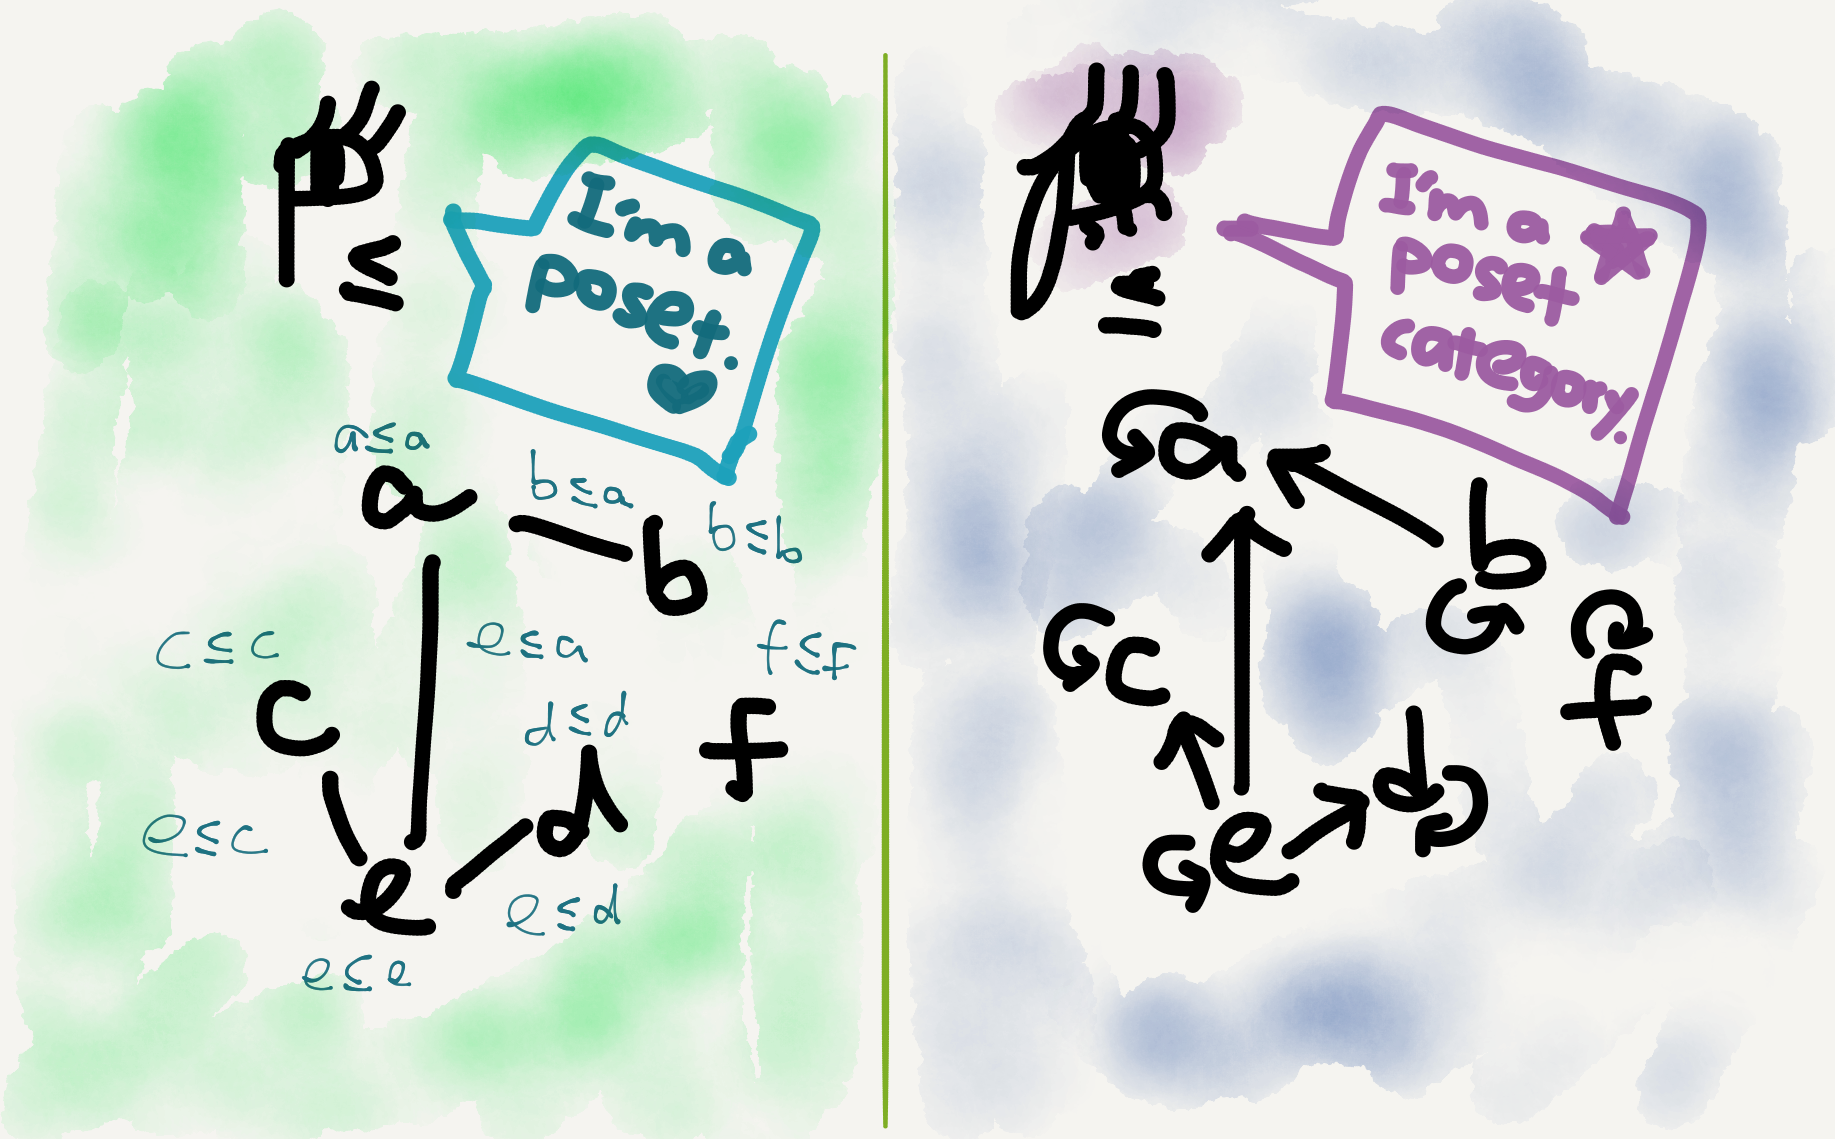 P
≤
I'm a
poset.
a≤a
a
b≤a
b
b≤b
c≤c
c
e≤a
f≤f
f
d≤d
d
e≤c
e
e≤d
e≤e
P
≤
I'm a
poset
category.
a
b
c
f
d
e